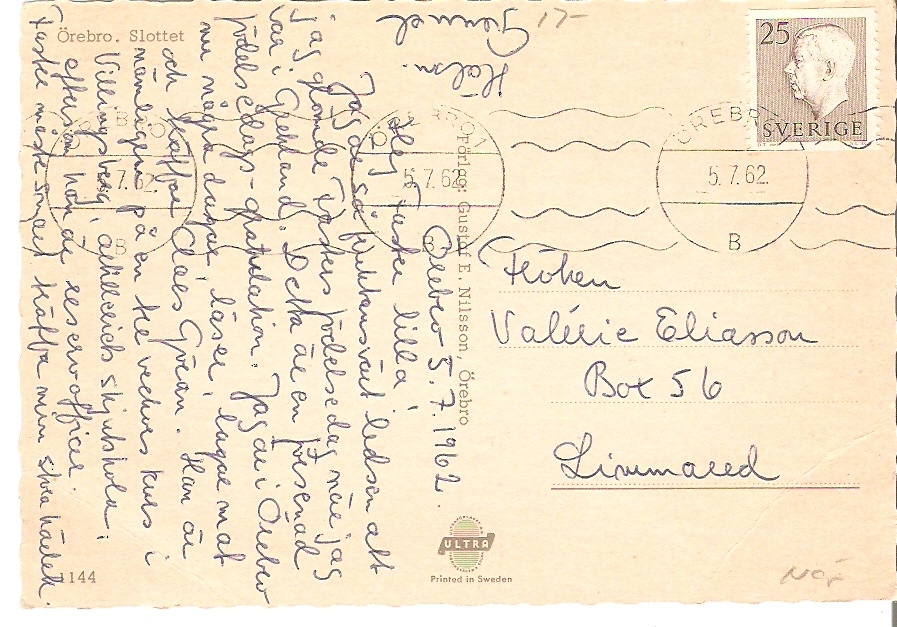 Örebro. Slottet
Örebro 5.7.1962.
Hej Faster lilla!
Jag är så fruktansvärt ledsen att
jag glömde Fasters födelsedag när jag
var i Grekland. Detta är en försenad
födelsedags-gratulation. Jag är i Örebro
nu några dagar, läser, lagar mat
och träffar Claes Göran. Han är
nämligen på en tre veckors kurs i
Villingsberg, artilleriets skjutskola,
eftersom han är reservofficer.
Faster måste snart träffa min stora kärlek.
Hälsn.
Gunnel
Förlag: Gustaf E. Nilsson, Örebro
25
SVERIGE
ÖREBRO 1
5.7.62
B
ÖREBRO 1
5.7.62
B
ÖREBRO
5.7.62
B
Fröken
Valérie Eliasson
Box 56
Limmared
ULTRA
Printed in Sweden
1144